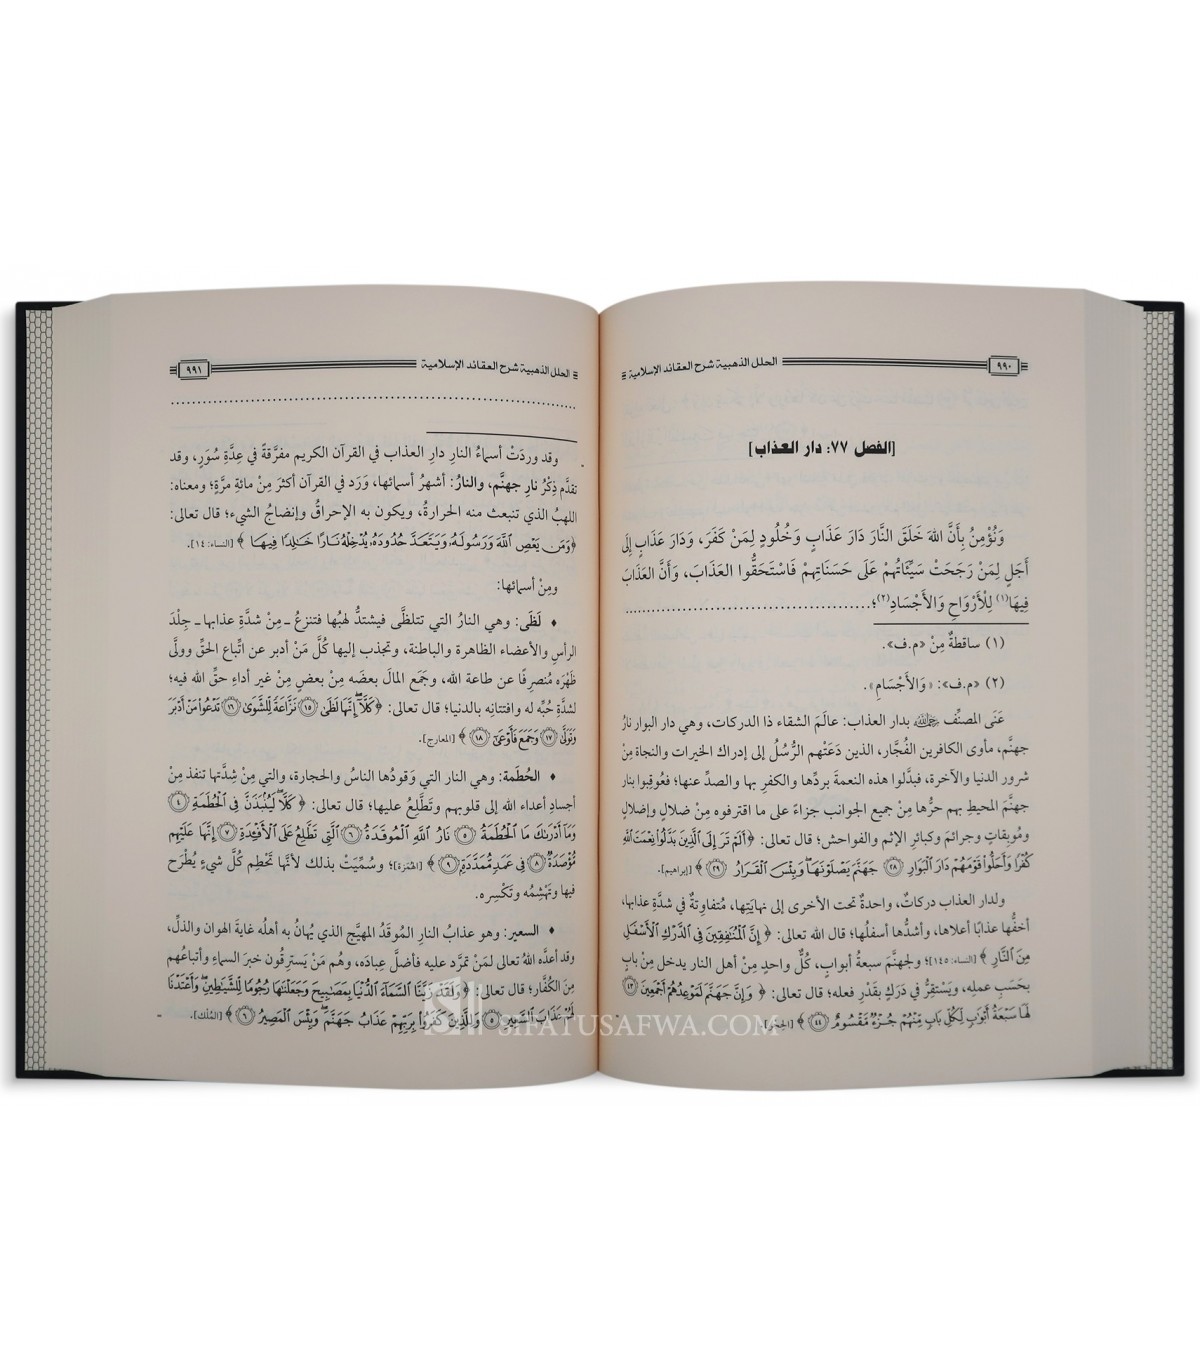 ٩٩٠ الحلل الذهبية شرح العقائد الإسلامية
[الفصل ٧٧: دار العذاب]
وَنُؤْمِنُ بِأَنَّ اللهَ خَلَقَ النَّارَ دَارَ عَذَابٍ وَخُلُودٍ لِمَنْ كَفَرَ، وَدَارَ عَذَابٍ إِلَى
أَجَلٍ لِمَنْ رَجَحَتْ سَيِّئَاتُهُمْ عَلَى حَسَنَاتِهِمْ فَاسْتَحَقُّوا العَذَابَ، وَأَنَّ العَذَابَ
فِيهَا(١) لِلْأَرْوَاحِ وَالأَجْسَادِ(٢)؛
(١) ساقطةٌ مِنْ «م.ف».
(٢) «م.ف»: «وَالأَجْسَامِ».
عَنَى المصنِّف رحمه الله بدار العذاب: عالَمَ الشقاء ذا الدركات، وهي دار البوار نارُ
جهنَّم، مأوى الكافرين الفُجَّار، الذين دَعَتْهم الرُّسُل إلى إدراك الخيرات والنجاة مِنْ
شرور الدنيا والآخرة، فبدَّلوا هذه النعمةَ بردِّها والكفرِ بها والصدِّ عنها؛ فعُوقِبوا بنار
جهنَّمَ المحيطِ بهم حرُّها مِنْ جميع الجوانب جزاءً على ما اقترفوه مِنْ ضلالٍ وإضلالٍ
ومُوبِقاتٍ وجرائمَ وكبائرِ الإثم والفواحش؛ قال تعالى: ﴿أَلَمْ تَرَ إِلَى ٱلَّذِينَ بَدَّلُوا۟ نِعْمَتَ ٱللَّهِ
كُفْرًا وَأَحَلُّوا۟ قَوْمَهُمْ دَارَ ٱلْبَوَارِ ۝٢٨ جَهَنَّمَ يَصْلَوْنَهَا ۖ وَبِئْسَ ٱلْقَرَارُ ۝٢٩﴾ [إبراهيم].
ولدار العذاب دركاتٌ، واحدةٌ تحت الأخرى إلى نهايَتِها، مُتفاوِتةٌ في شدَّةِ عذابها،
أخفُّها عذابًا أعلاها، وأشدُّها أسفلُها؛ قال الله تعالى: ﴿إِنَّ ٱلْمُنَٰفِقِينَ فِي ٱلدَّرْكِ ٱلْأَسْفَلِ
مِنَ ٱلنَّارِ﴾ [النساء: ١٤٥]؛ ولجهنَّمَ سبعةُ أبوابٍ، كُلُّ واحدٍ مِنْ أهل النار يدخل مِنْ بابٍ
بحَسَبِ عملِه، ويَسْتقِرُّ في دَرَكٍ بقَدْرِ فعله؛ قال تعالى: ﴿وَإِنَّ جَهَنَّمَ لَمَوْعِدُهُمْ أَجْمَعِينَ ۝٤٣
لَهَا سَبْعَةُ أَبْوَٰبٍ لِّكُلِّ بَابٍ مِّنْهُمْ جُزْءٌ مَّقْسُومٌ ۝٤٤﴾ [الحِجْر].
الحلل الذهبية شرح العقائد الإسلامية ٩٩١
وقد وردَتْ أسماءُ النارِ دارِ العذاب في القرآن الكريم مفرَّقةً في عِدَّةِ سُوَرٍ، وقد
تقدَّم ذِكْرُ نارِ جهنَّم، والنارُ: أشهرُ أسمائها، وَرَد في القرآن أكثرَ مِنْ مائةِ مرَّةٍ؛ ومعناه:
اللهبُ الذي تنبعث منه الحرارةُ، ويكون به الإحراقُ وإنضاجُ الشيء؛ قال تعالى:
﴿وَمَن يَعْصِ ٱللَّهَ وَرَسُولَهُۥ وَيَتَعَدَّ حُدُودَهُۥ يُدْخِلْهُ نَارًا خَٰلِدًا فِيهَا﴾ [النساء: ١٤].
ومِنْ أسمائها:
♦ لَظَى: وهي النارُ التي تتلظَّى فيشتدُّ لهبُها فتنزعُ ـ مِنْ شدَّةِ عذابها ـ جِلْدَ
الرأسِ والأعضاء الظاهرة والباطنة، وتجذب إليها كُلَّ مَنْ أدبر عن اتِّباع الحقِّ وولَّى
ظَهْرَه مُنصرِفًا عن طاعة الله، وجَمَع المالَ بعضَه مِنْ بعضٍ مِنْ غير أداءِ حقِّ الله فيه؛
لشدَّةِ حُبِّه له وافتتانِه بالدنيا؛ قال تعالى: ﴿كَلَّآ ۖ إِنَّهَا لَظَىٰ ۝١٥ نَزَّاعَةً لِّلشَّوَىٰ ۝١٦ تَدْعُوا۟ مَنْ أَدْبَرَ
وَتَوَلَّىٰ ۝١٧ وَجَمَعَ فَأَوْعَىٰٓ ۝١٨﴾ [المعارج].
♦ الحُطَمة: وهي النار التي وَقودُها الناسُ والحجارة، والتي مِنْ شِدَّتها تنفذ مِنْ
أجسادِ أعداء الله إلى قلوبهم وتَطَّلِعُ عليها؛ قال تعالى: ﴿كَلَّا ۖ لَيُنۢبَذَنَّ فِي ٱلْحُطَمَةِ ۝٤
وَمَآ أَدْرَىٰكَ مَا ٱلْحُطَمَةُ ۝٥ نَارُ ٱللَّهِ ٱلْمُوقَدَةُ ۝٦ ٱلَّتِي تَطَّلِعُ عَلَى ٱلْأَفْـِٔدَةِ ۝٧ إِنَّهَا عَلَيْهِم
مُّؤْصَدَةٌ ۝٨ فِي عَمَدٍ مُّمَدَّدَةٍۭ ۝٩﴾ [الهُمَزة]؛ وسُمِّيَتْ بذلك لأنها تَحْطِم كُلَّ شيءٍ يُطْرَح
فيها وتَهْشِمُه وتَكْسِره.
♦ السعير: وهو عذابُ النارِ المُوقَدُ المهيَّج الذي يُهانُ به أهلُه غايةَ الهوان والذلِّ،
وقد أعدَّه اللهُ تعالى لمَنْ تمرَّد عليه فأضلَّ عِبادَه، وهُم مَنْ يَسترِقون خبرَ السماءِ وأتباعُهم
مِنَ الكُفَّار؛ قال تعالى: ﴿وَلَقَدْ زَيَّنَّا ٱلسَّمَآءَ ٱلدُّنْيَا بِمَصَٰبِيحَ وَجَعَلْنَٰهَا رُجُومًا لِّلشَّيَٰطِينِ ۖ وَأَعْتَدْنَا
لَهُمْ عَذَابَ ٱلسَّعِيرِ ۝٥ وَلِلَّذِينَ كَفَرُوا۟ بِرَبِّهِمْ عَذَابُ جَهَنَّمَ ۖ وَبِئْسَ ٱلْمَصِيرُ ۝٦﴾ [المُلك].
SIFATUSAFWA.COM